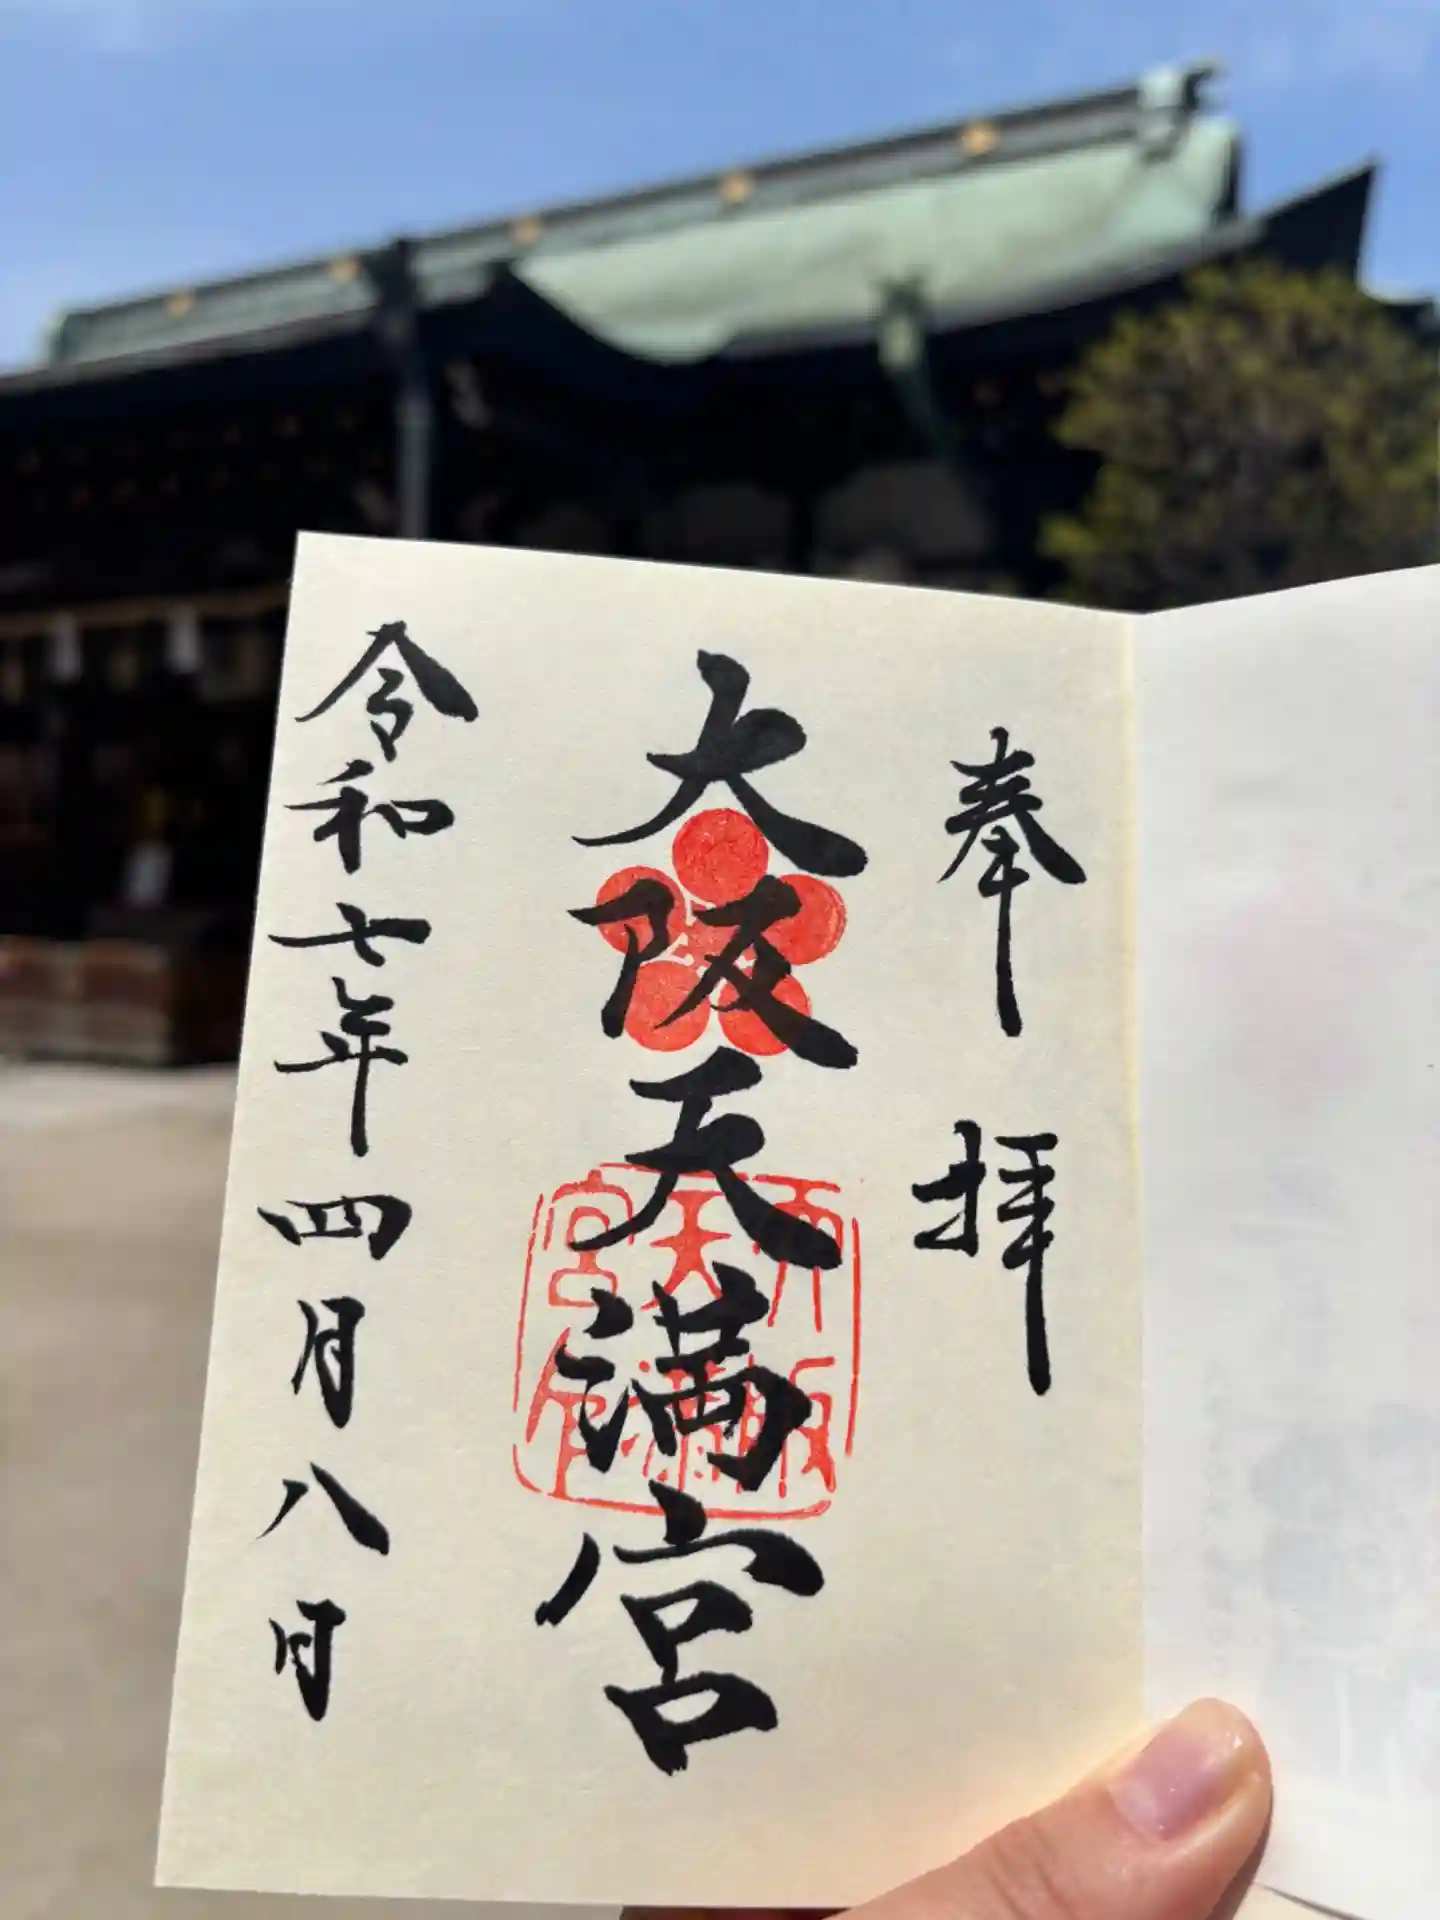 奉拝
大阪天満宮
令和七年四月八日
大阪
天満
宮印